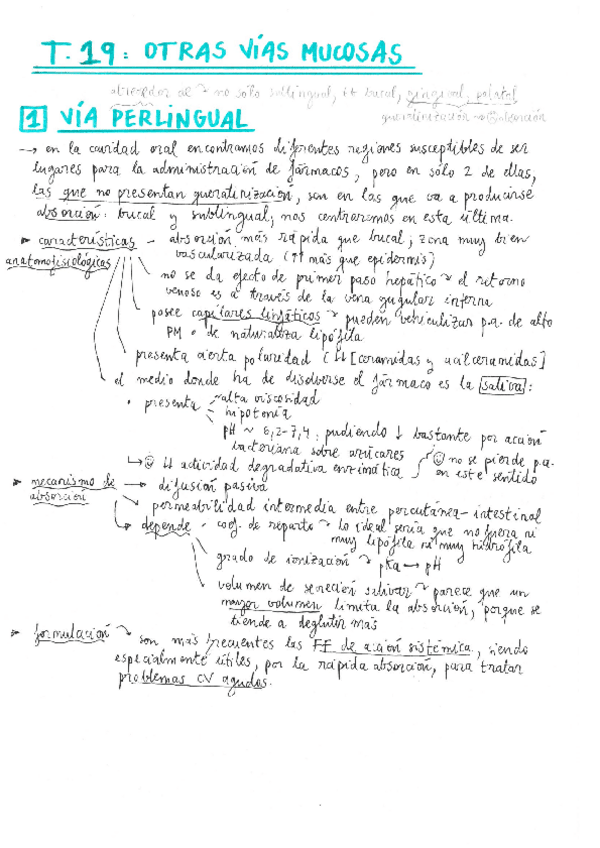 T.19: OTRAS VÍAS MUCOSAS
alrededor de → no sólo sublingual, tt bucal, gingival, palatal
queratinización → absorción
1 VÍA PERLINGUAL
→ en la cavidad oral encontramos diferentes regiones susceptibles de ser
lugares para la administración de fármacos, pero en sólo 2 de ellas,
las que no presentan queratinización, son en las que va a producirse
absorción: bucal y sublingual; nos centraremos en esta última.
► características - absorción más rápida que bucal; zona muy bien
anatomofisiológicas vascularizada (↑↑ más que epidermis)
no se da efecto de primer paso hepático → el retorno
venoso es a través de la vena yugular interna
posee capilares linfáticos → pueden vehiculizar p.a. de alto
PM o de naturaleza lipófila
presenta cierta polaridad (↓↓ [ceramidas y acilceramidas]
el medio donde ha de disolverse el fármaco es la saliva:
• presenta alta viscosidad
hipotonía
pH ~ 6,2-7,4: pudiendo ↓ bastante por acción
bacteriana sobre azúcares
↳ ☺ ↓↓ actividad degradativa enzimática ☺ no se pierde p.a. en este sentido
► mecanismo de absorción → difusión pasiva
permeabilidad intermedia entre percutánea-intestinal
depende - coef. de reparto → lo ideal sería que no fuera ni
muy lipófila ni muy hidrófila
grado de ionización → pKa → pH
volumen de secreción salivar → parece que un
mayor volumen limita la absorción, porque se
tiende a deglutir más
► formulación → son más frecuentes las FF de acción sistémica, siendo
especialmente útiles, por la rápida absorción, para tratar
problemas CV agudos.